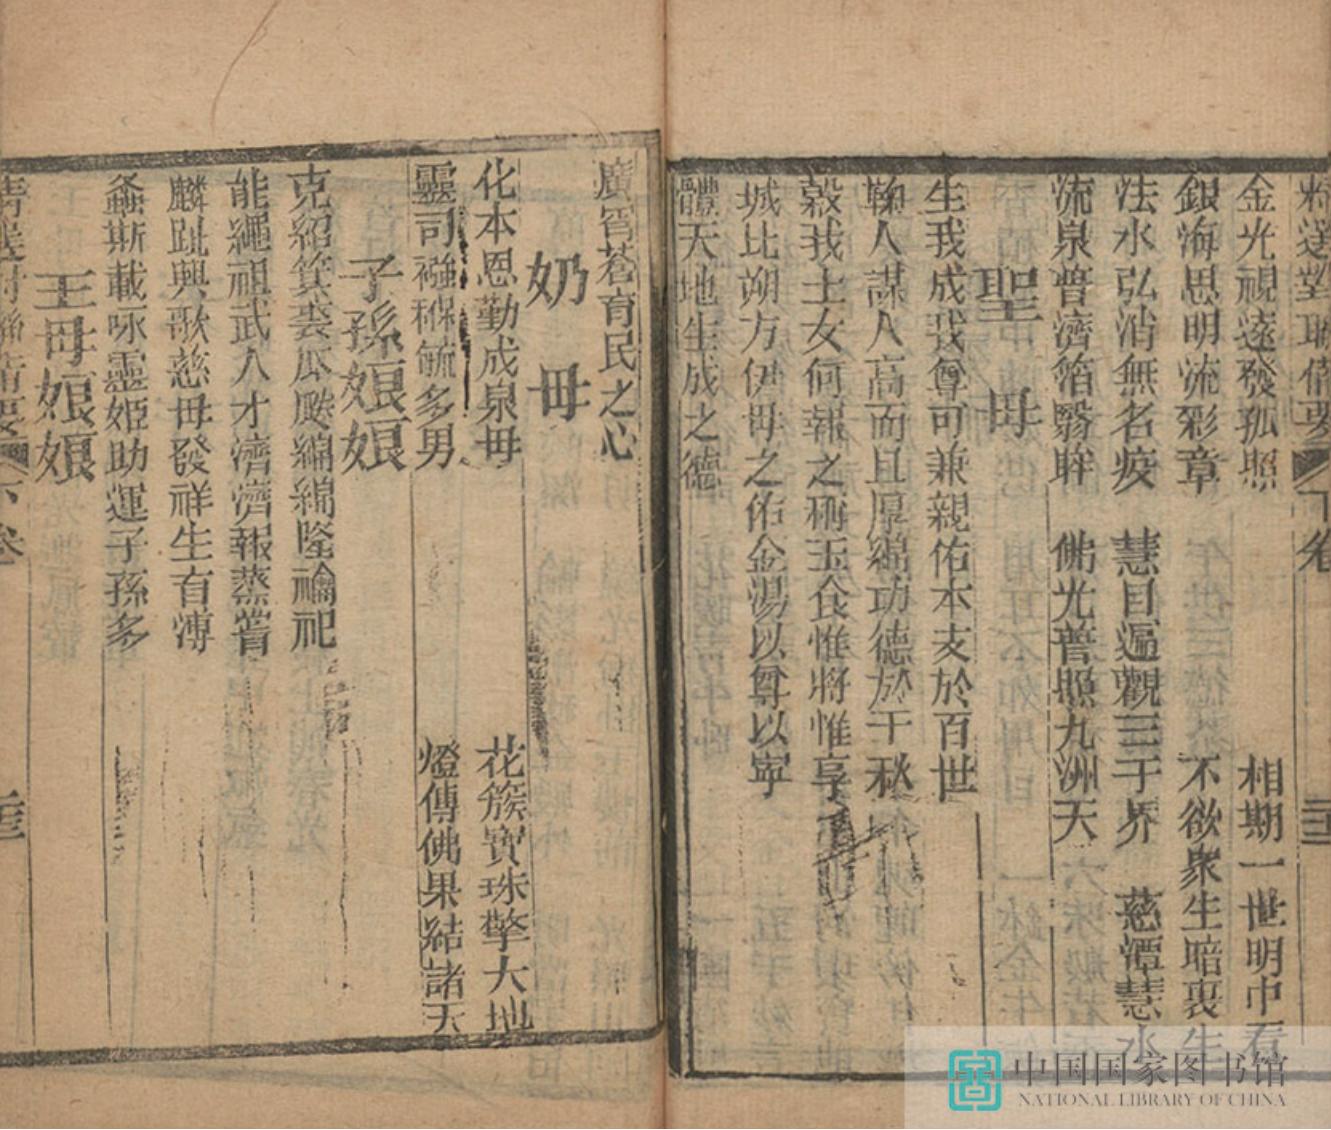 精選對聯備要 下卷
金光視遠發孤照 相期一世明中看
銀海思明流彩章 不欲衆生暗裏生
法水弘消無名疫 慧目遍觀三千界 慈潭慧水
流泉普濟箔翳眸 佛光普照九洲天
聖母
生我成我尊可兼親佑本支於百世
鞠人謀人高而且厚綿功德於千秋
穀我士女何報之稱玉食惟將惟享
城比朔方伊母之佑金湯以尊以寧
體天地生成之德
廣窅蒼育民之心
奶母
化本恩勤成泉母 花簇寶珠擎大地
靈司襁褓毓多男 燈傳佛果結諸天
子孫娘娘
克紹箕裘瓜瓞綿綿隆禴祀
能繩祖武人才濟濟報蒸嘗
麟趾興歌慈母發祥生有溥
螽斯載咏靈姬助運子孫多
王母娘娘
下卷
中国国家图书馆
NATIONAL LIBRARY OF CHINA